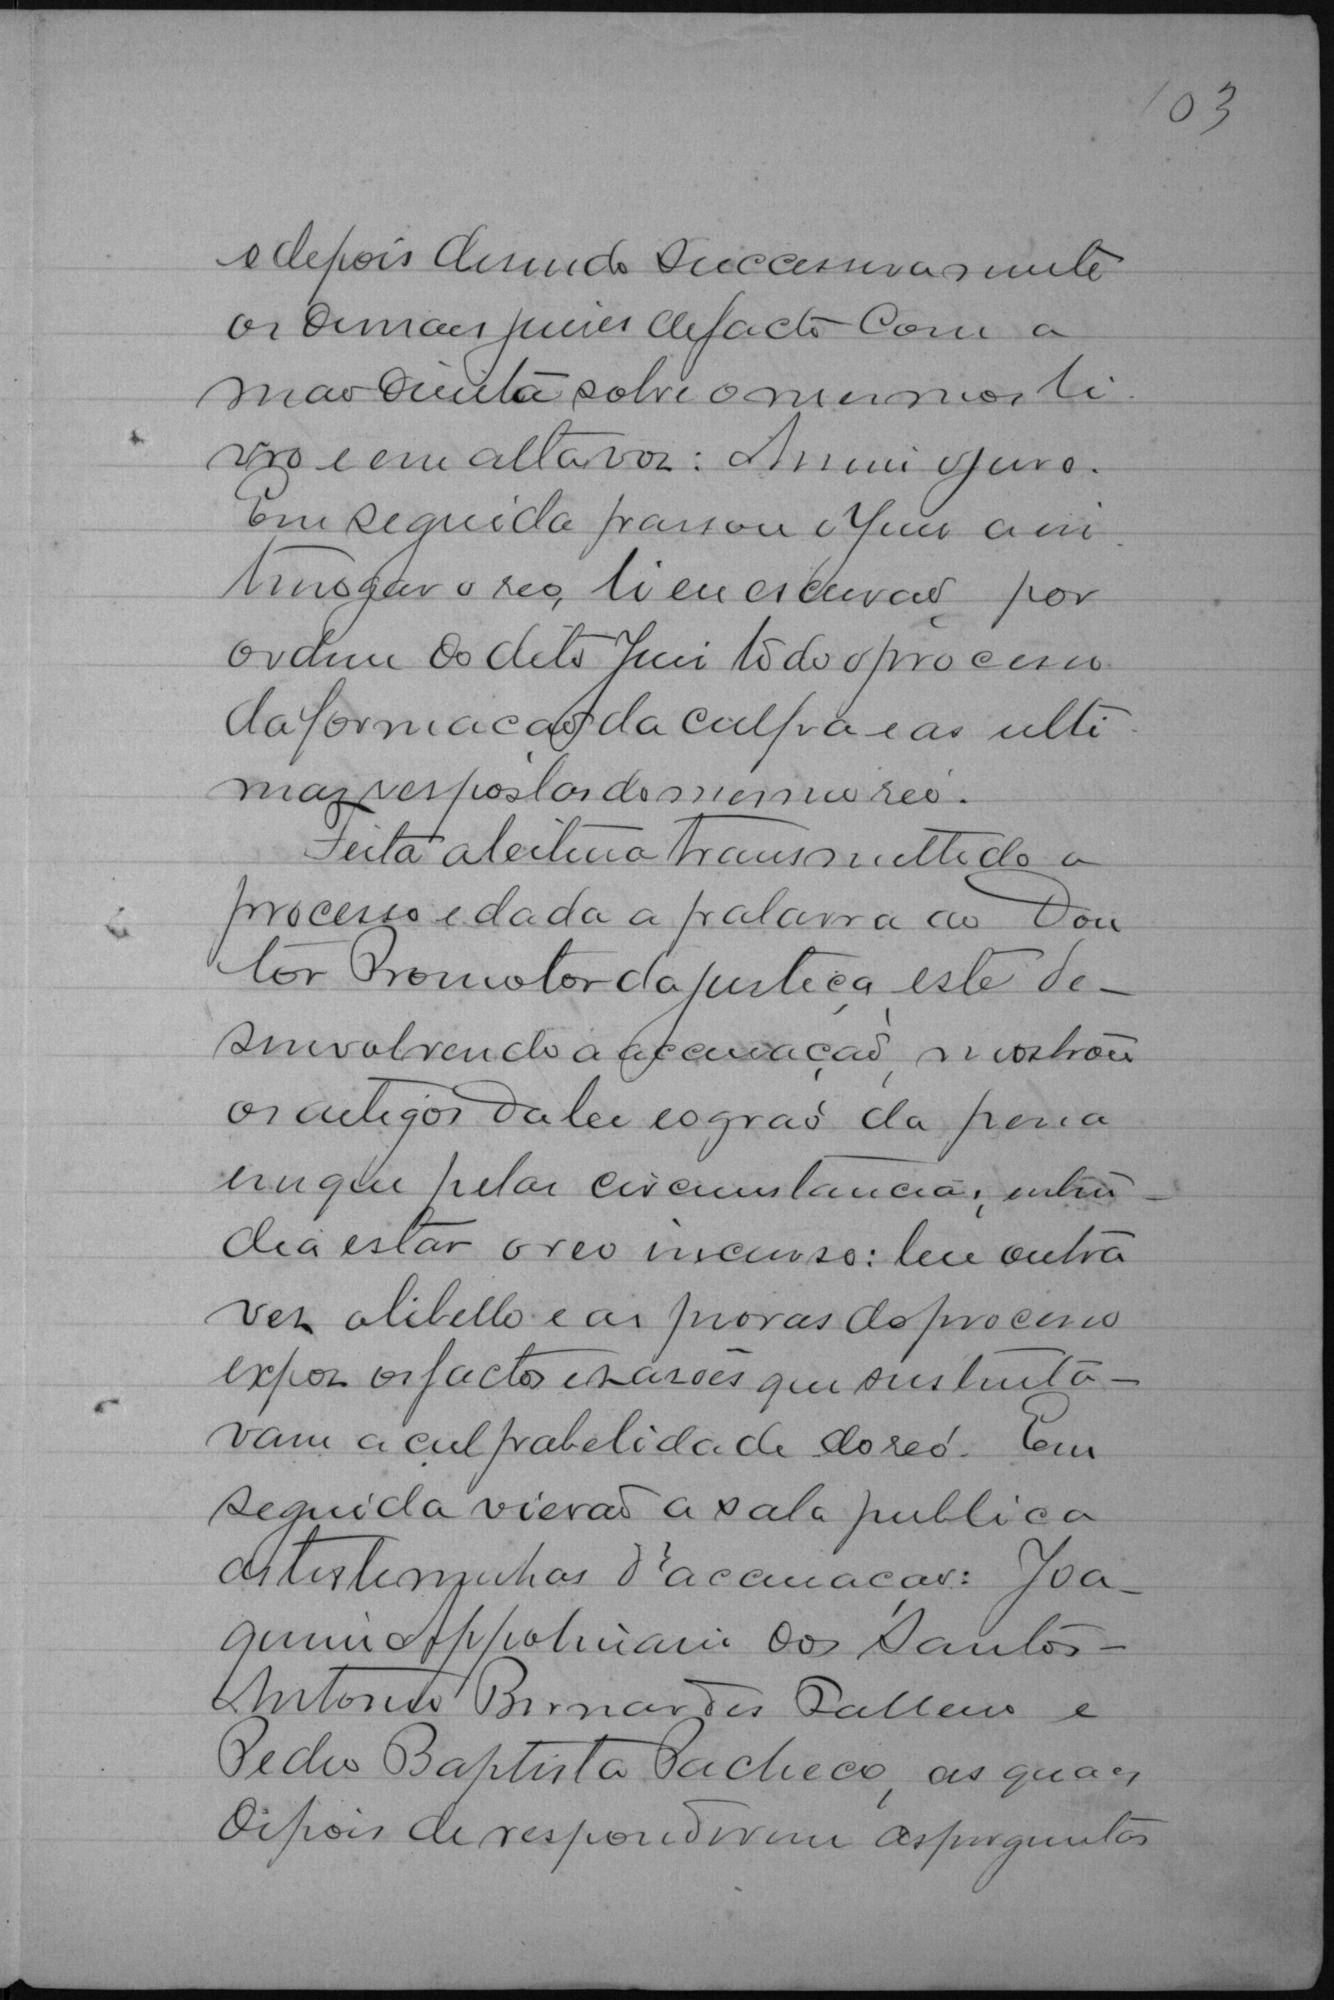 103
e depois disendo successivamente
os demais juises de facto com a
mão direita sobre o mesmos li
vro e em alta vos: Assim o juro.
Em seguida passou o Juis a in
terrogar o reo, li eu escrivaõ, por
ordem do dito Juis todo o processo
da formaçaõ da culpa e as ulti
mas respostas do mesmo reó.
Feita a leitura transmettido o
processo e dada a palavra ao Dou
tor Promotor da justiça, este de-
senvolvendo a accusaçaõ, mostrou
os artigos da lei e o graó da pena
em que pelas circumstancias, enten-
dia estar o reo incurso: leu outra
vez o libello e as provas do processo
expoz os factos e rasões que sustenta-
vam a culpabelidade do reó. Em
seguida vieraõ a sala publica
as testemunhas d'accusaçaõ: Joa-
quim Appolinario dos Santos -
Antonio Bernardes e
Pedro Baptista Pacheco, as quaes
depois de responderem as perguntas